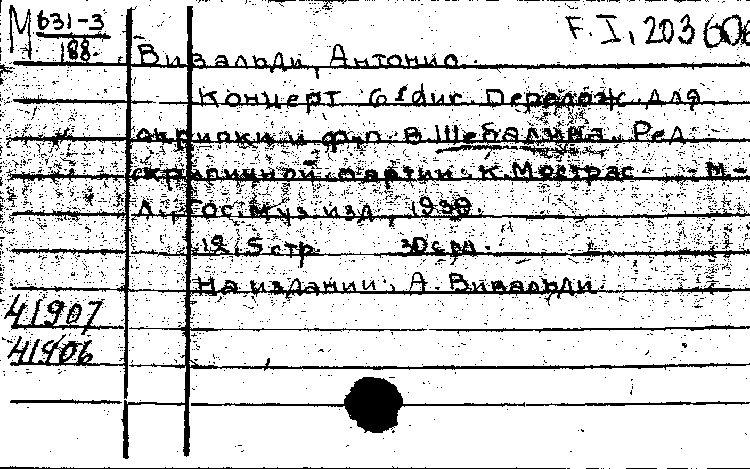 М 631-3
188.
F. I, 203
Вивальди, Антонио.
Концерт Перелож. для
скрипки и ф.п. В. Шебалина. Ред.
скрипичной партии К. Мострас - М -
Л., Гос. муз. изд.,
12, 5 стр.
На издании: А. Вивальди
41907
41906